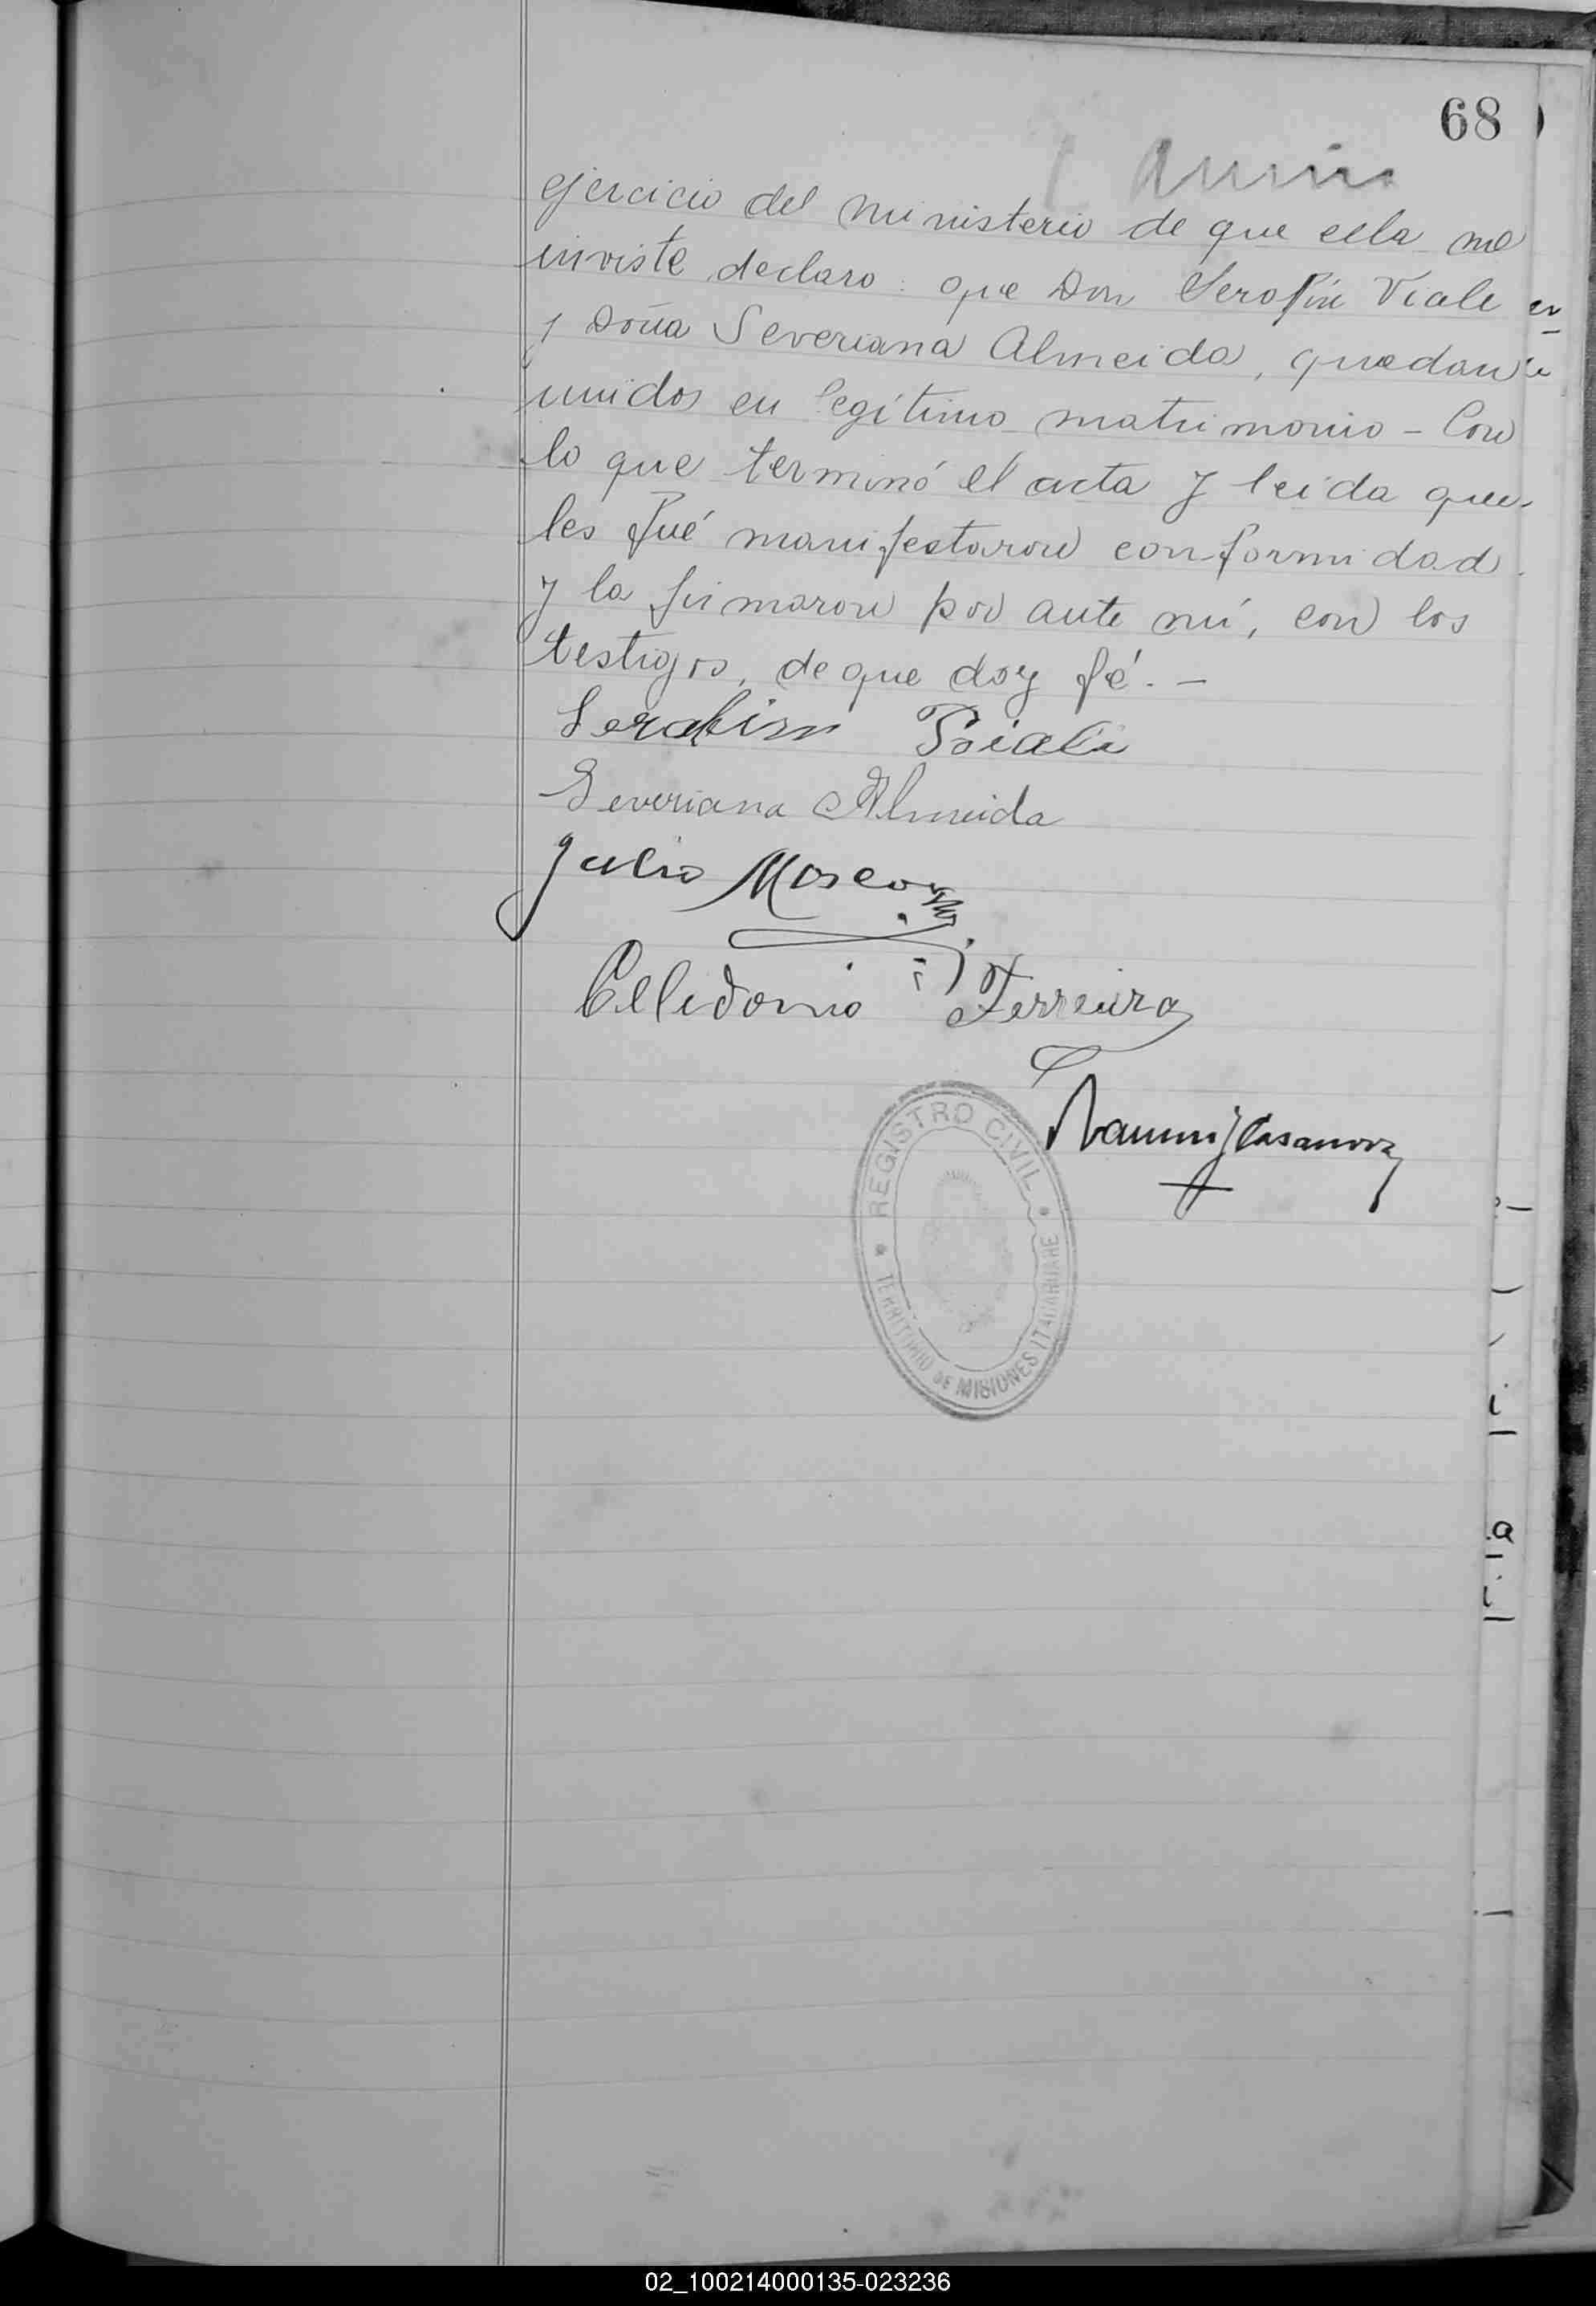 68
ejercicio del ministerio de que ella me
inviste declaro: que Don Serafin Viale
y Doña Severiana Almeida, quedan
unidos en legítimo matrimonio - Con
lo que terminó el acta y leida que
les fué manifestaron conformidad
y la firmaron por ante mí, con los
testigos, de que doy fé. -
Serafim Viale
Severiana Almeida
Julio Moscon
Celedonio Ferreira
Casanova
REGISTRO CIVIL
TERRITORIO DE MISIONES ITACARUARE
02_100214000135-023236